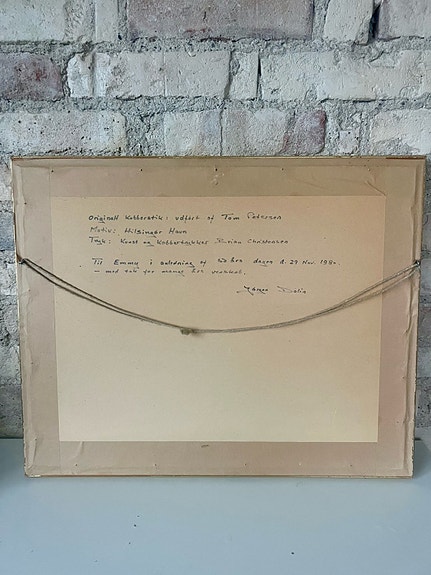 Originalt Kobberstik: udført af Tom Petersen
Motiv: Helsingør Havn
Tryk: Kunst og Kobbertrykker Christensen
Til Emmy i anledning af dagen d. 29 Nov. 198
– med tak for mange års venskab.
Jørgen